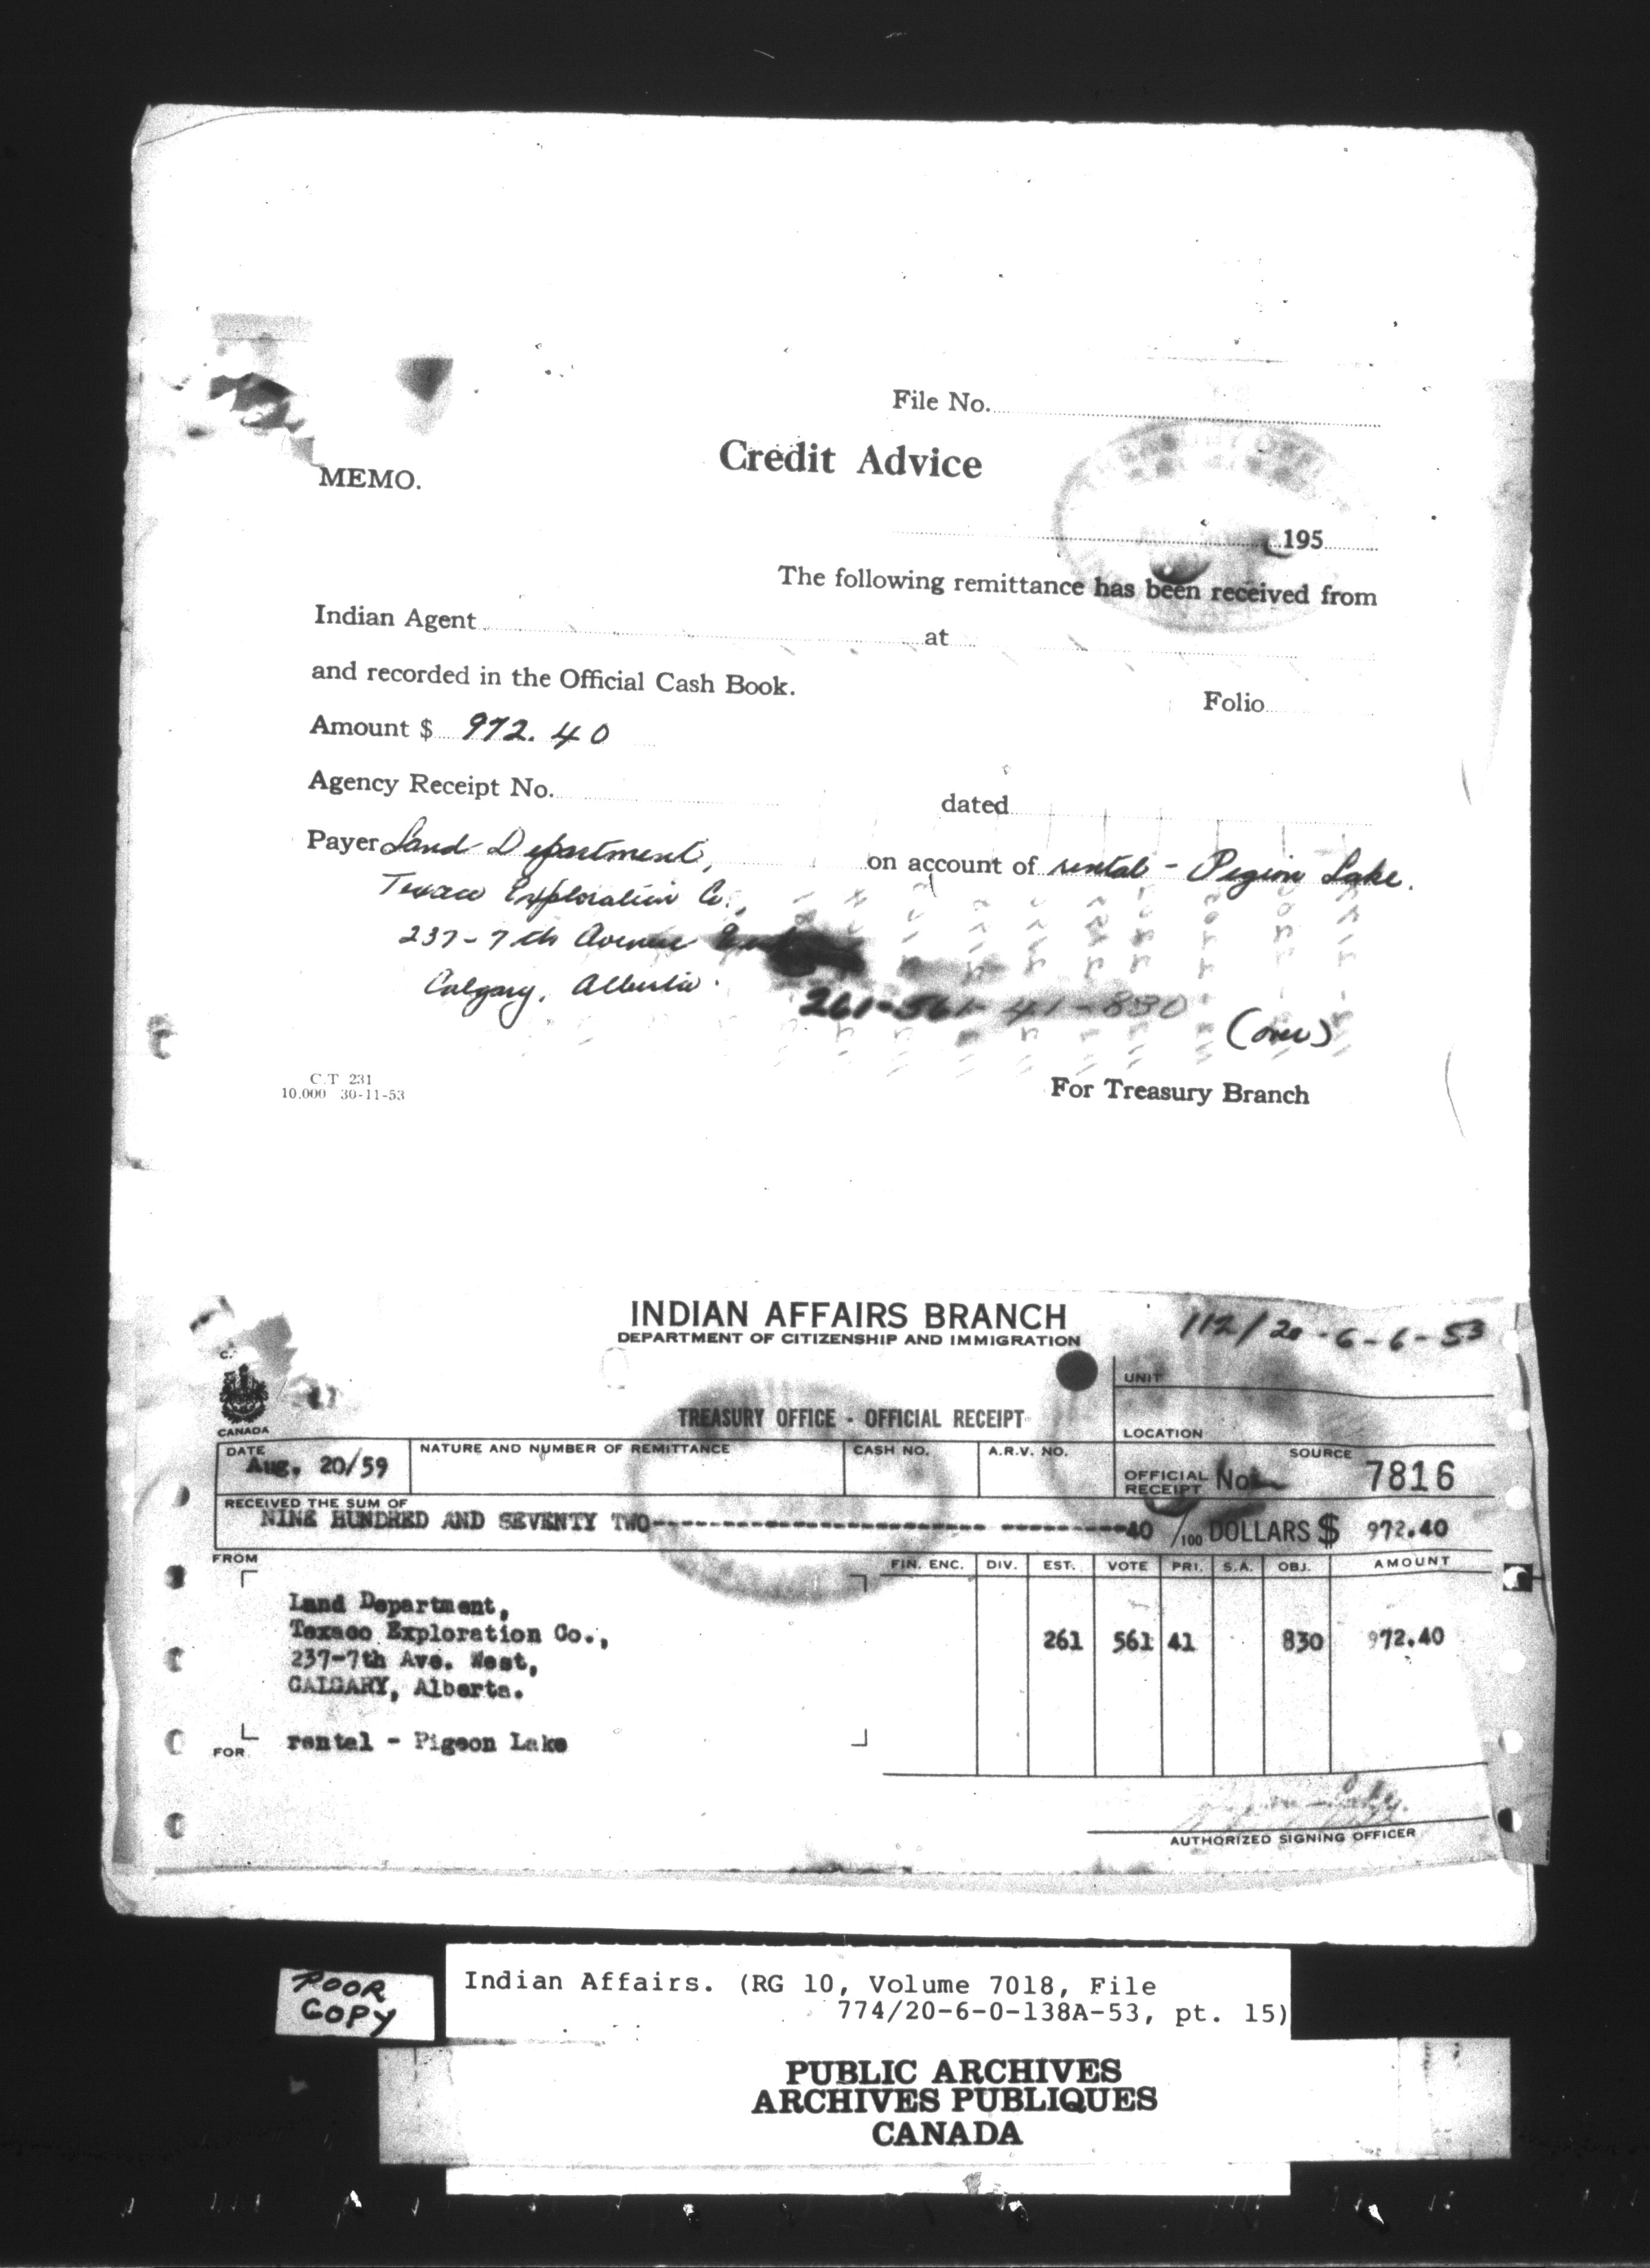 File No.
Credit Advice
MEMO.
195
The following remittance has been received from
Indian Agent at
and recorded in the Official Cash Book.
Folio
Amount $ 972.40
Agency Receipt No. dated
Payer Land Department, on account of rental - Pegion Lake.
Texaco Exploration Co.,
237-7th Avenue
Calgary, Alberta.
261-561-41-830
(over)
C.T 231
10.000 30-11-53
For Treasury Branch
INDIAN AFFAIRS BRANCH
DEPARTMENT OF CITIZENSHIP AND IMMIGRATION
112/20-6-6-53
UNIT
CANADA
TREASURY OFFICE - OFFICIAL RECEIPT
LOCATION
DATE NATURE AND NUMBER OF REMITTANCE CASH NO. A.R.V. NO. SOURCE
Aug. 20/59 OFFICIAL RECEIPT No 7816
RECEIVED THE SUM OF
NINE HUNDRED AND SEVENTY TWO------------------------------ -----------40 /100 DOLLARS $ 972.40
FROM FIN. ENC. DIV. EST. VOTE PRI. S.A. OBJ. AMOUNT
Land Department,
Texaco Exploration Co., 261 561 41 830 972.40
237-7th Ave. West,
CALGARY, Alberta.
FOR rental - Pigeon Lake
AUTHORIZED SIGNING OFFICER
POOR
COPY
Indian Affairs. (RG 10, Volume 7018, File
774/20-6-0-138A-53, pt. 15)
PUBLIC ARCHIVES
ARCHIVES PUBLIQUES
CANADA